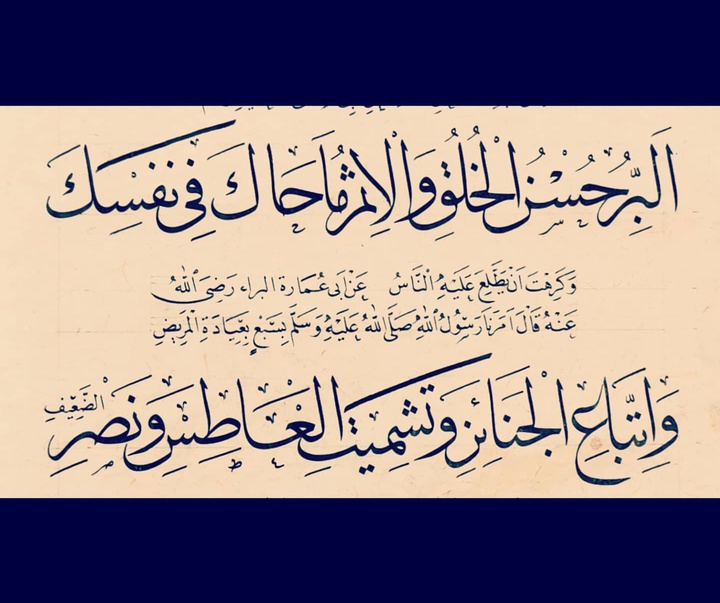 اَلبِرُّ حُسْنُ الْخُلُقِ وَالْاِثْمُ مَا حَاكَ فِي نَفْسِكَ
وَكَرِهْتَ اَنْ يَطَّلِعَ عَلَيْهِ النَّاسُ عَنْ اَبِي عُمَارَةَ البراء رَضِيَ اللهُ
عَنْهُ قَالَ اَمَرَنَا رَسُولُ اللهِ صَلَّى اللهُ عَلَيْهِ وَسَلَّمَ بِسَبْعٍ بِعِيَادَةِ الْمَرِيضِ
وَاِتِّبَاعِ الْجَنَائِزِ وَتَشْمِيتِ الْعَاطِسِ وَنَصْرِ الضَّعِيفِ